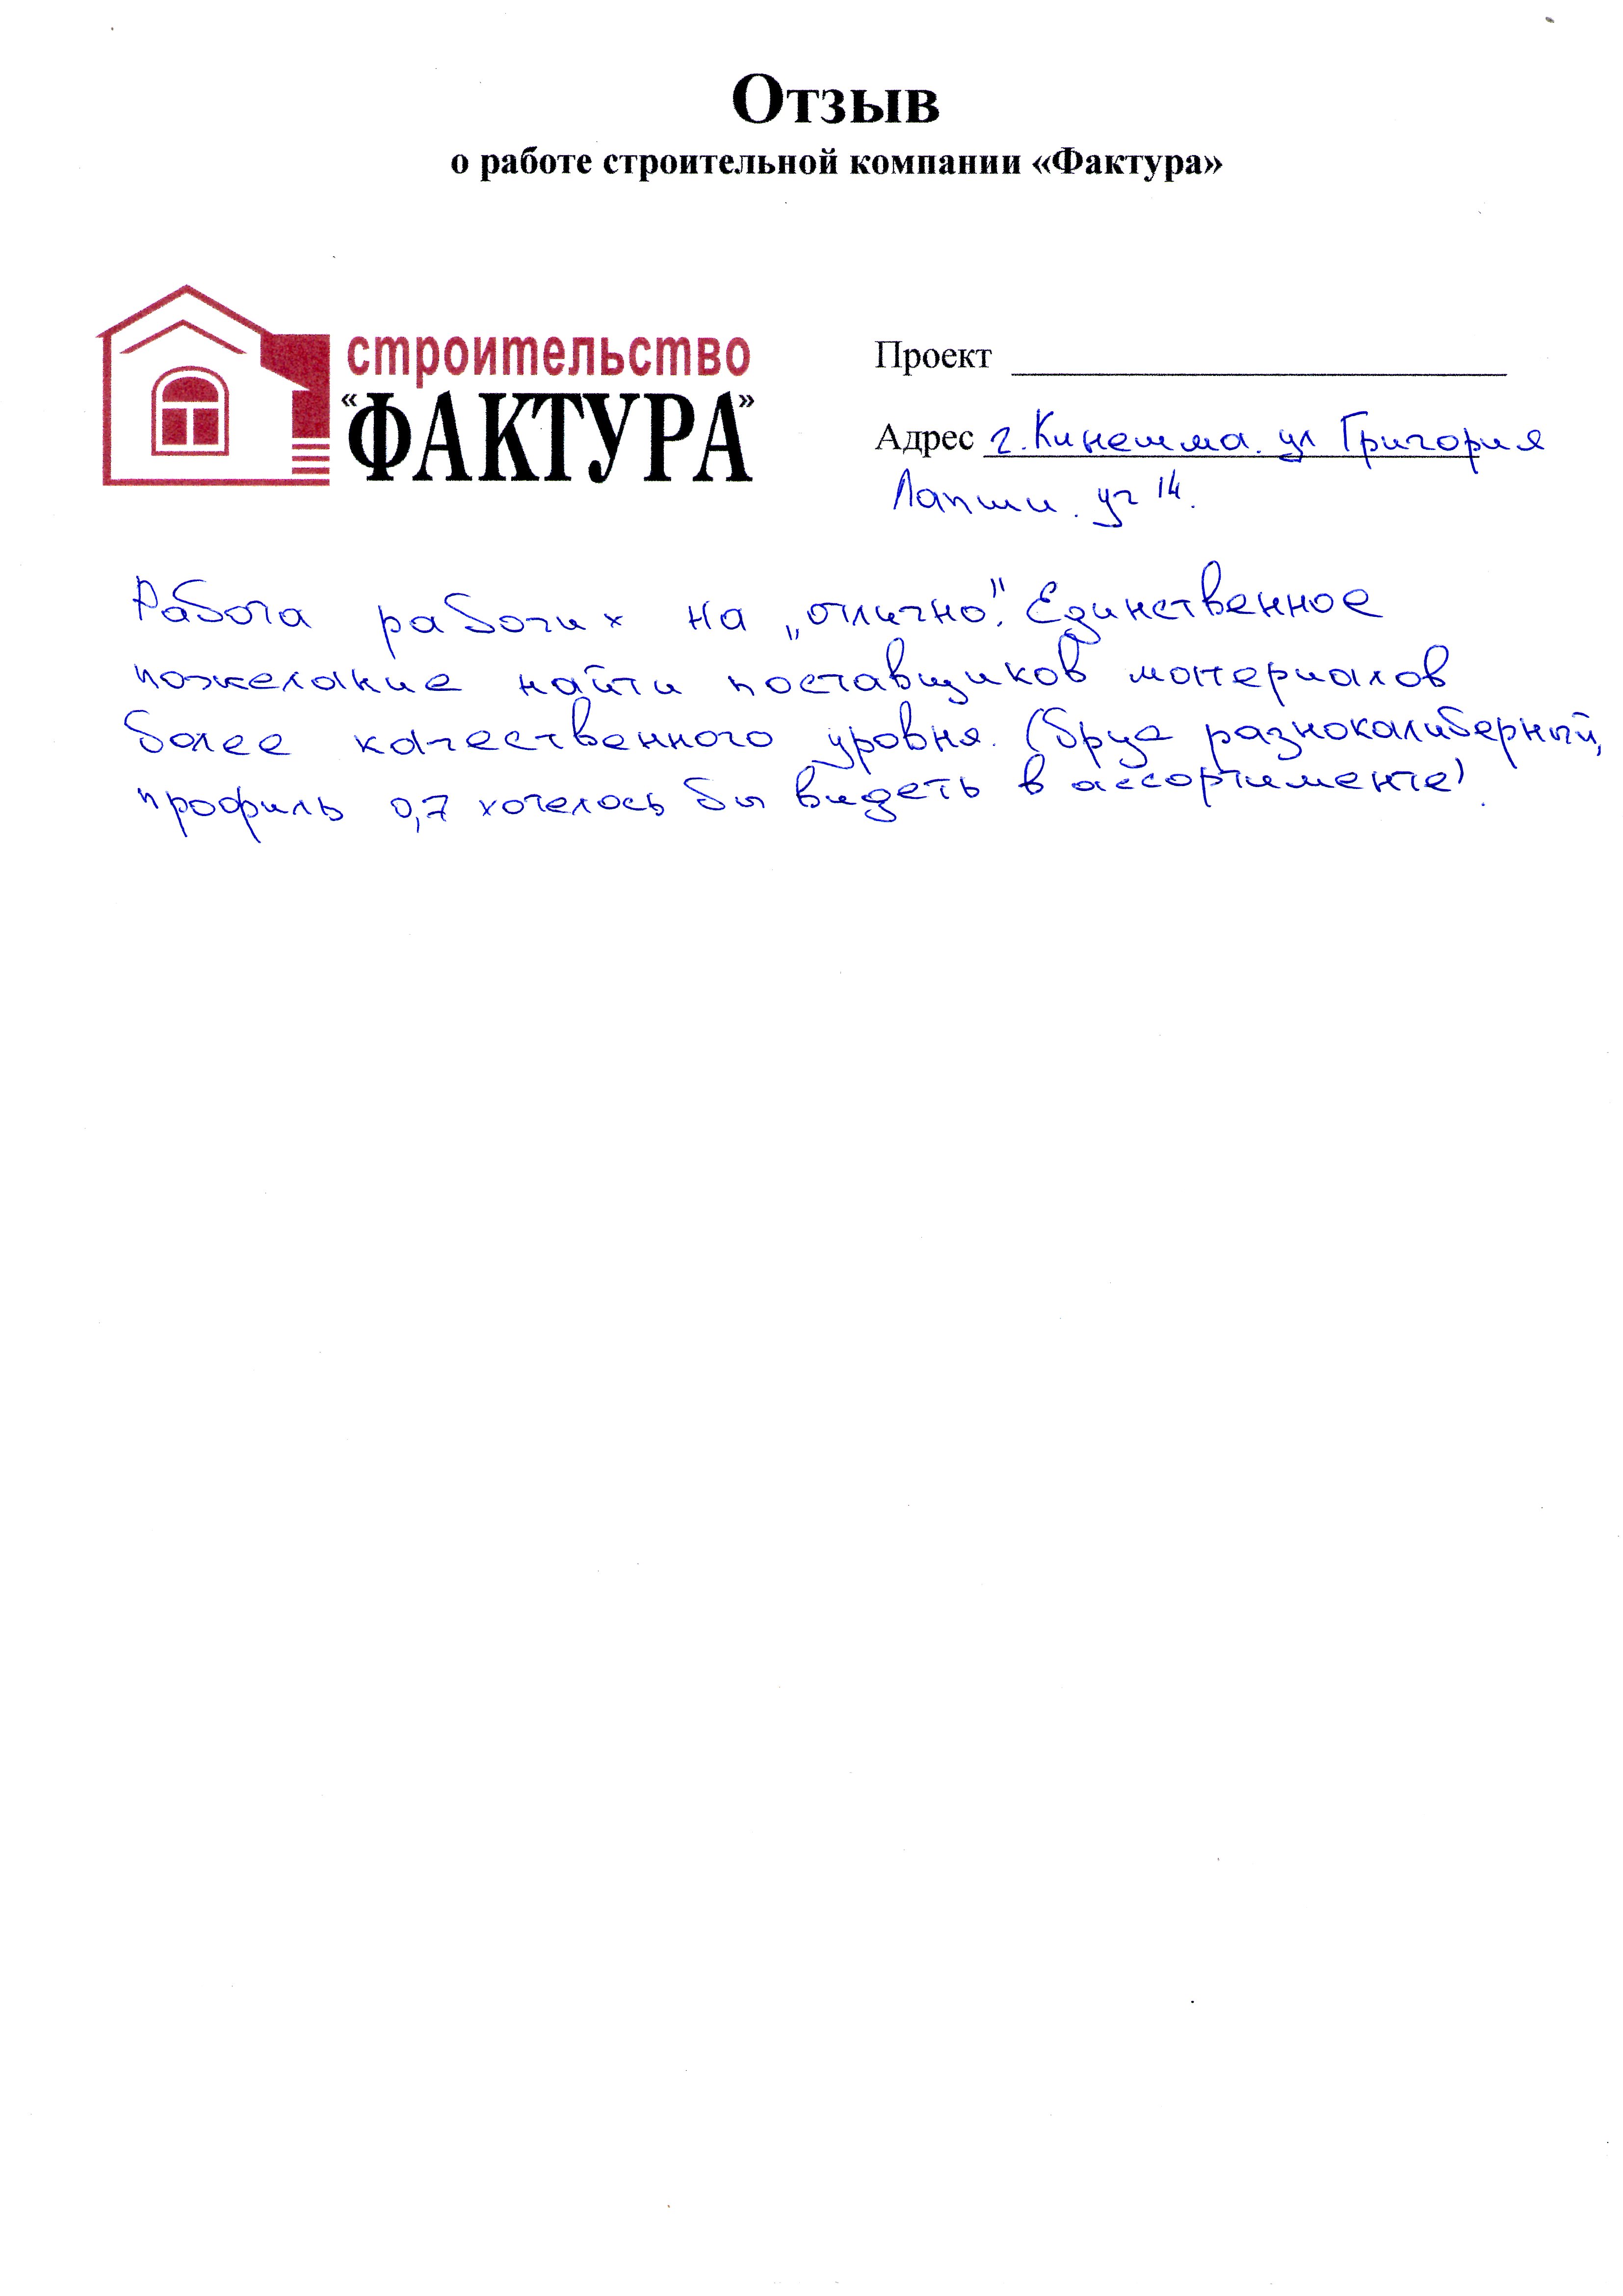 Отзыв
о работе строительной компании «Фактура»
строительство
«ФАКТУРА»
Проект
Адрес г. Кинешма. ул Григория
Лапши. уч 14.
Работа рабочих на „отлично". Единственное
пожелание найти поставщиков материалов
более качественного уровня. (брус разнокалиберный,
профиль 0,7 хотелось бы видеть в ассортименте).